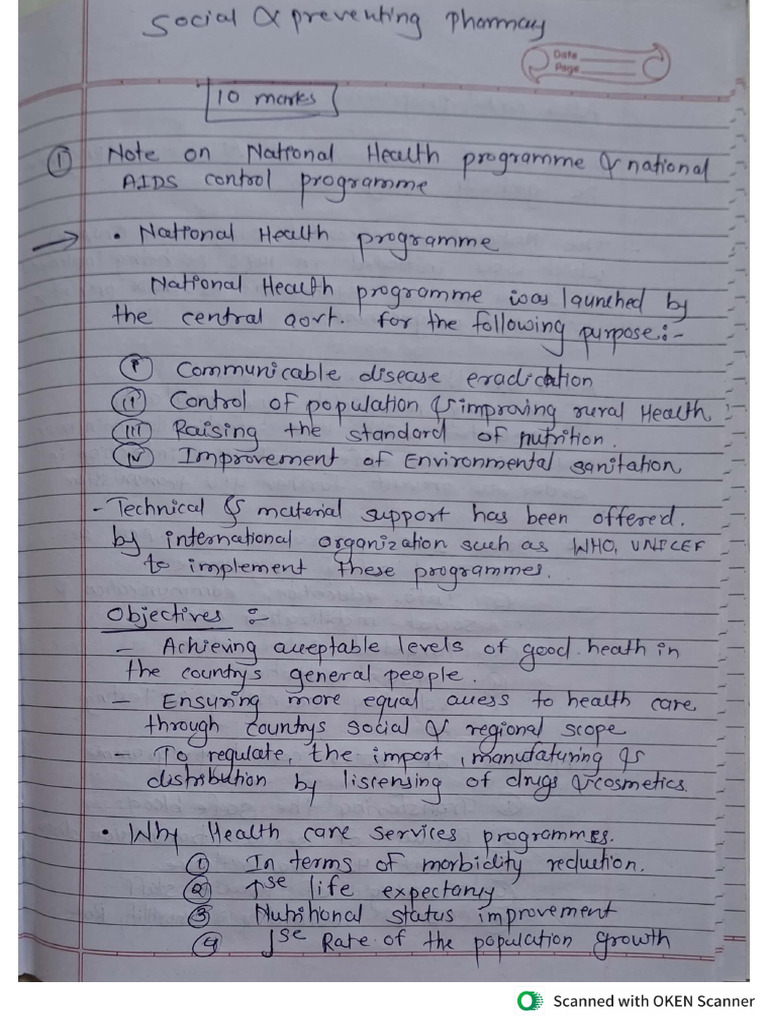 Social & preventing pharmacy
Date
Page
10 marks
① Note on National Health programme & national
AIDS control programme
→ • National Health programme
National Health programme was launched by
the central govt. for the following purpose:-
(i) Communicable disease eradication
(ii) Control of population & improving rural Health
(iii) Raising the standard of nutrition.
(iv) Improvement of Environmental sanitation
- Technical & material support has been offered.
by international organization such as WHO, UNICEF
to implement these programmes.
Objectives :-
- Achieving acceptable levels of good heath in
the countrys general people.
- Ensuring more equal access to health care
through countrys social & regional scope
- To regulate, the import, manufaturing &
distribution by liscensing of drugs & cosmetics.
• Why Health care services programmes.
① In terms of morbidity reduction.
② ↑se life expectany
③ Nutritional status improvement
④ ↓se Rate of the population growth
Scanned with OKEN Scanner